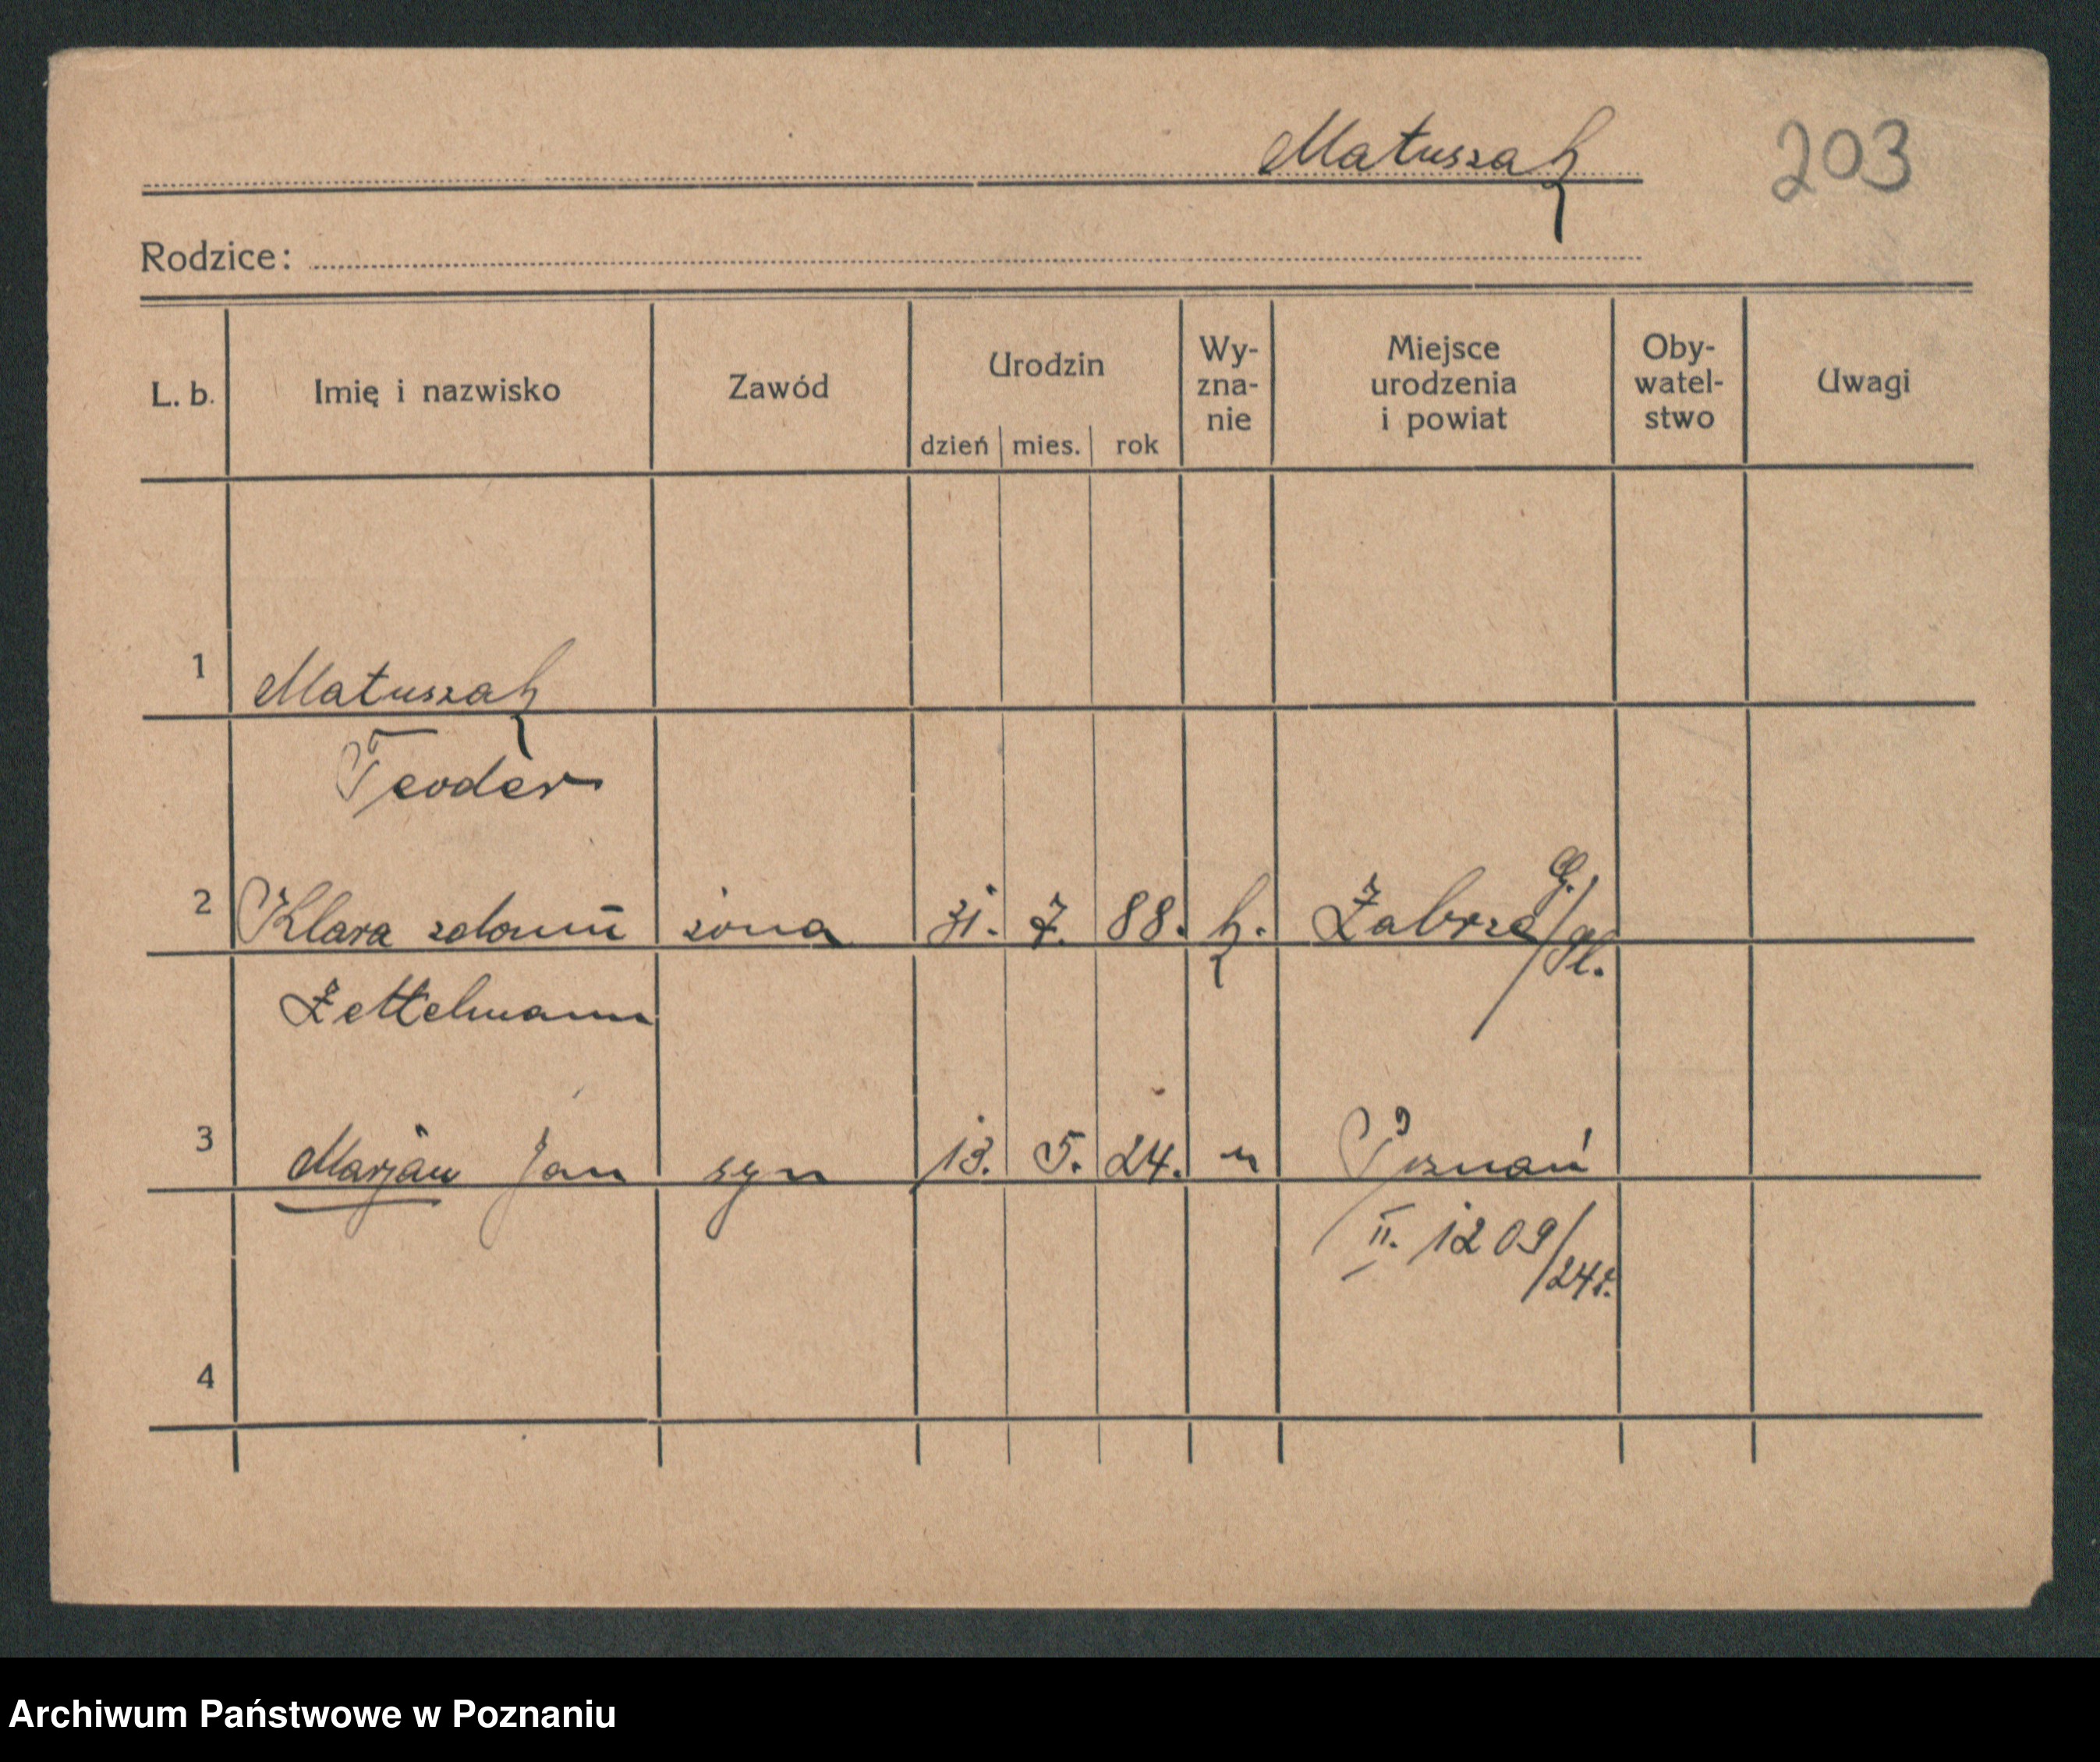 Matuszak 203
Rodzice:
L. b. Imię i nazwisko Zawód Urodzin dzień mies. rok Wy-zna-nie Miejsce urodzenia i powiat Oby-watel-stwo Uwagi
1 Matuszak
Teodor
2 Klara zdomu żona 31. 7. 88. k. Zabrze G./Śl.
Zettelmann
3 Marjan Jan syn 13. 5. 24. " Poznań
II. 1209/24r.
4
Archiwum Państwowe w Poznaniu